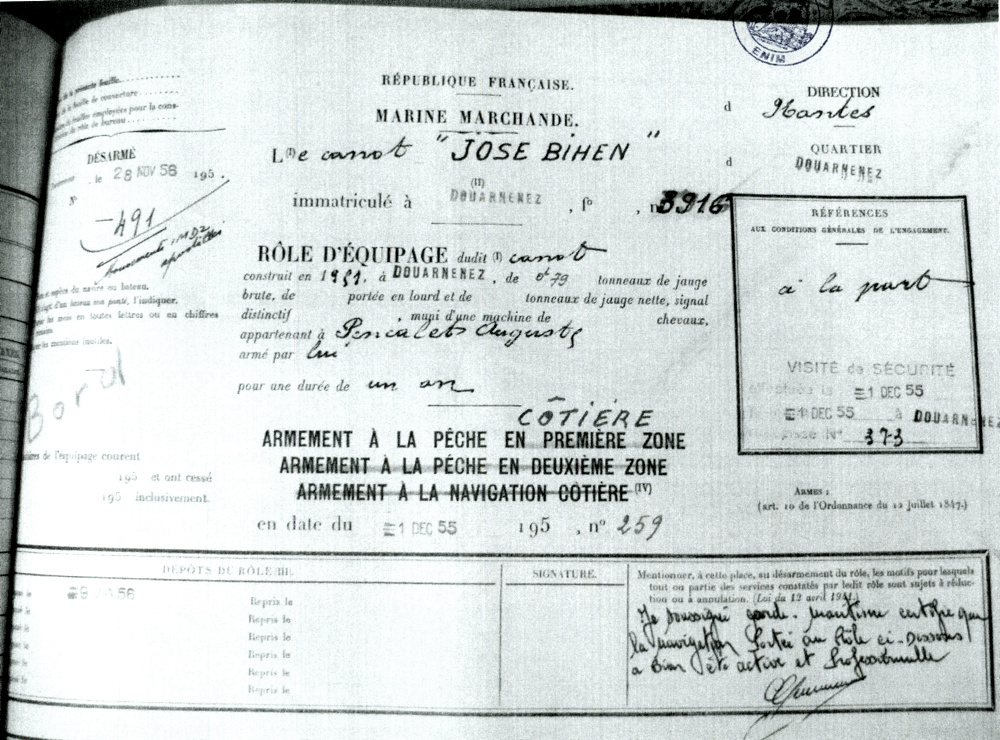 ENIM
RÉPUBLIQUE FRANÇAISE.
MARINE MARCHANDE.
DIRECTION
d Nantes
QUARTIER
d DOUARNENEZ
de la présente feuille
feuille de couverture
feuilles employées pour la cons-
du rôle de bureau
DÉSARMÉ
le 28 NOV 56 195 .
N°
491
L(I)e canot "JOSE BIHEN"
(II)
immatriculé à DOUARNENEZ , f° , n° 3916
RÔLE D'ÉQUIPAGE dudit (I) canot
construit en 1951, à DOUARNENEZ, de 0t79 tonneaux de jauge
brute, de portée en lourd et de tonneaux de jauge nette, signal
distinctif , muni d'une machine de chevaux,
appartenant à Pencalet Auguste
armé par lui
pour une durée de un an
CÔTIÈRE
ARMEMENT À LA PÊCHE EN PREMIÈRE ZONE
ARMEMENT À LA PÊCHE EN DEUXIÈME ZONE
ARMEMENT À LA NAVIGATION CÔTIÈRE (IV)
en date du 1 DEC 55 195 , n° 259
RÉFÉRENCES
AUX CONDITIONS GÉNÉRALES DE L'ENGAGEMENT.
à la part
VISITE de SÉCURITÉ
1 DEC 55
1 DEC 55 à DOUARNENEZ
N° 373
ARMES :
(art. 10 de l'Ordonnance du 12 juillet 1847.)
et espèce du navire ou bateau.
ponté, l'indiquer.
en toutes lettres ou en chiffres
les mentions inutiles.
de l'équipage courent
195 et ont cessé
195 inclusivement.
DÉPÔTS DU RÔLE III.
56
Repris le
Repris le
Repris le
Repris le
Repris le
Repris le
SIGNATURE.
Mentionner, à cette place, au désarmement du rôle, les motifs pour lesquels
tout ou partie des services constatés par ledit rôle sont sujets à réduc-
tion ou à annulation. (Loi du 12 avril 1941.)
Je soussigné garde-maritime certifie que
la navigation portée au Rôle ci-dessous
a bien été active et professionnelle